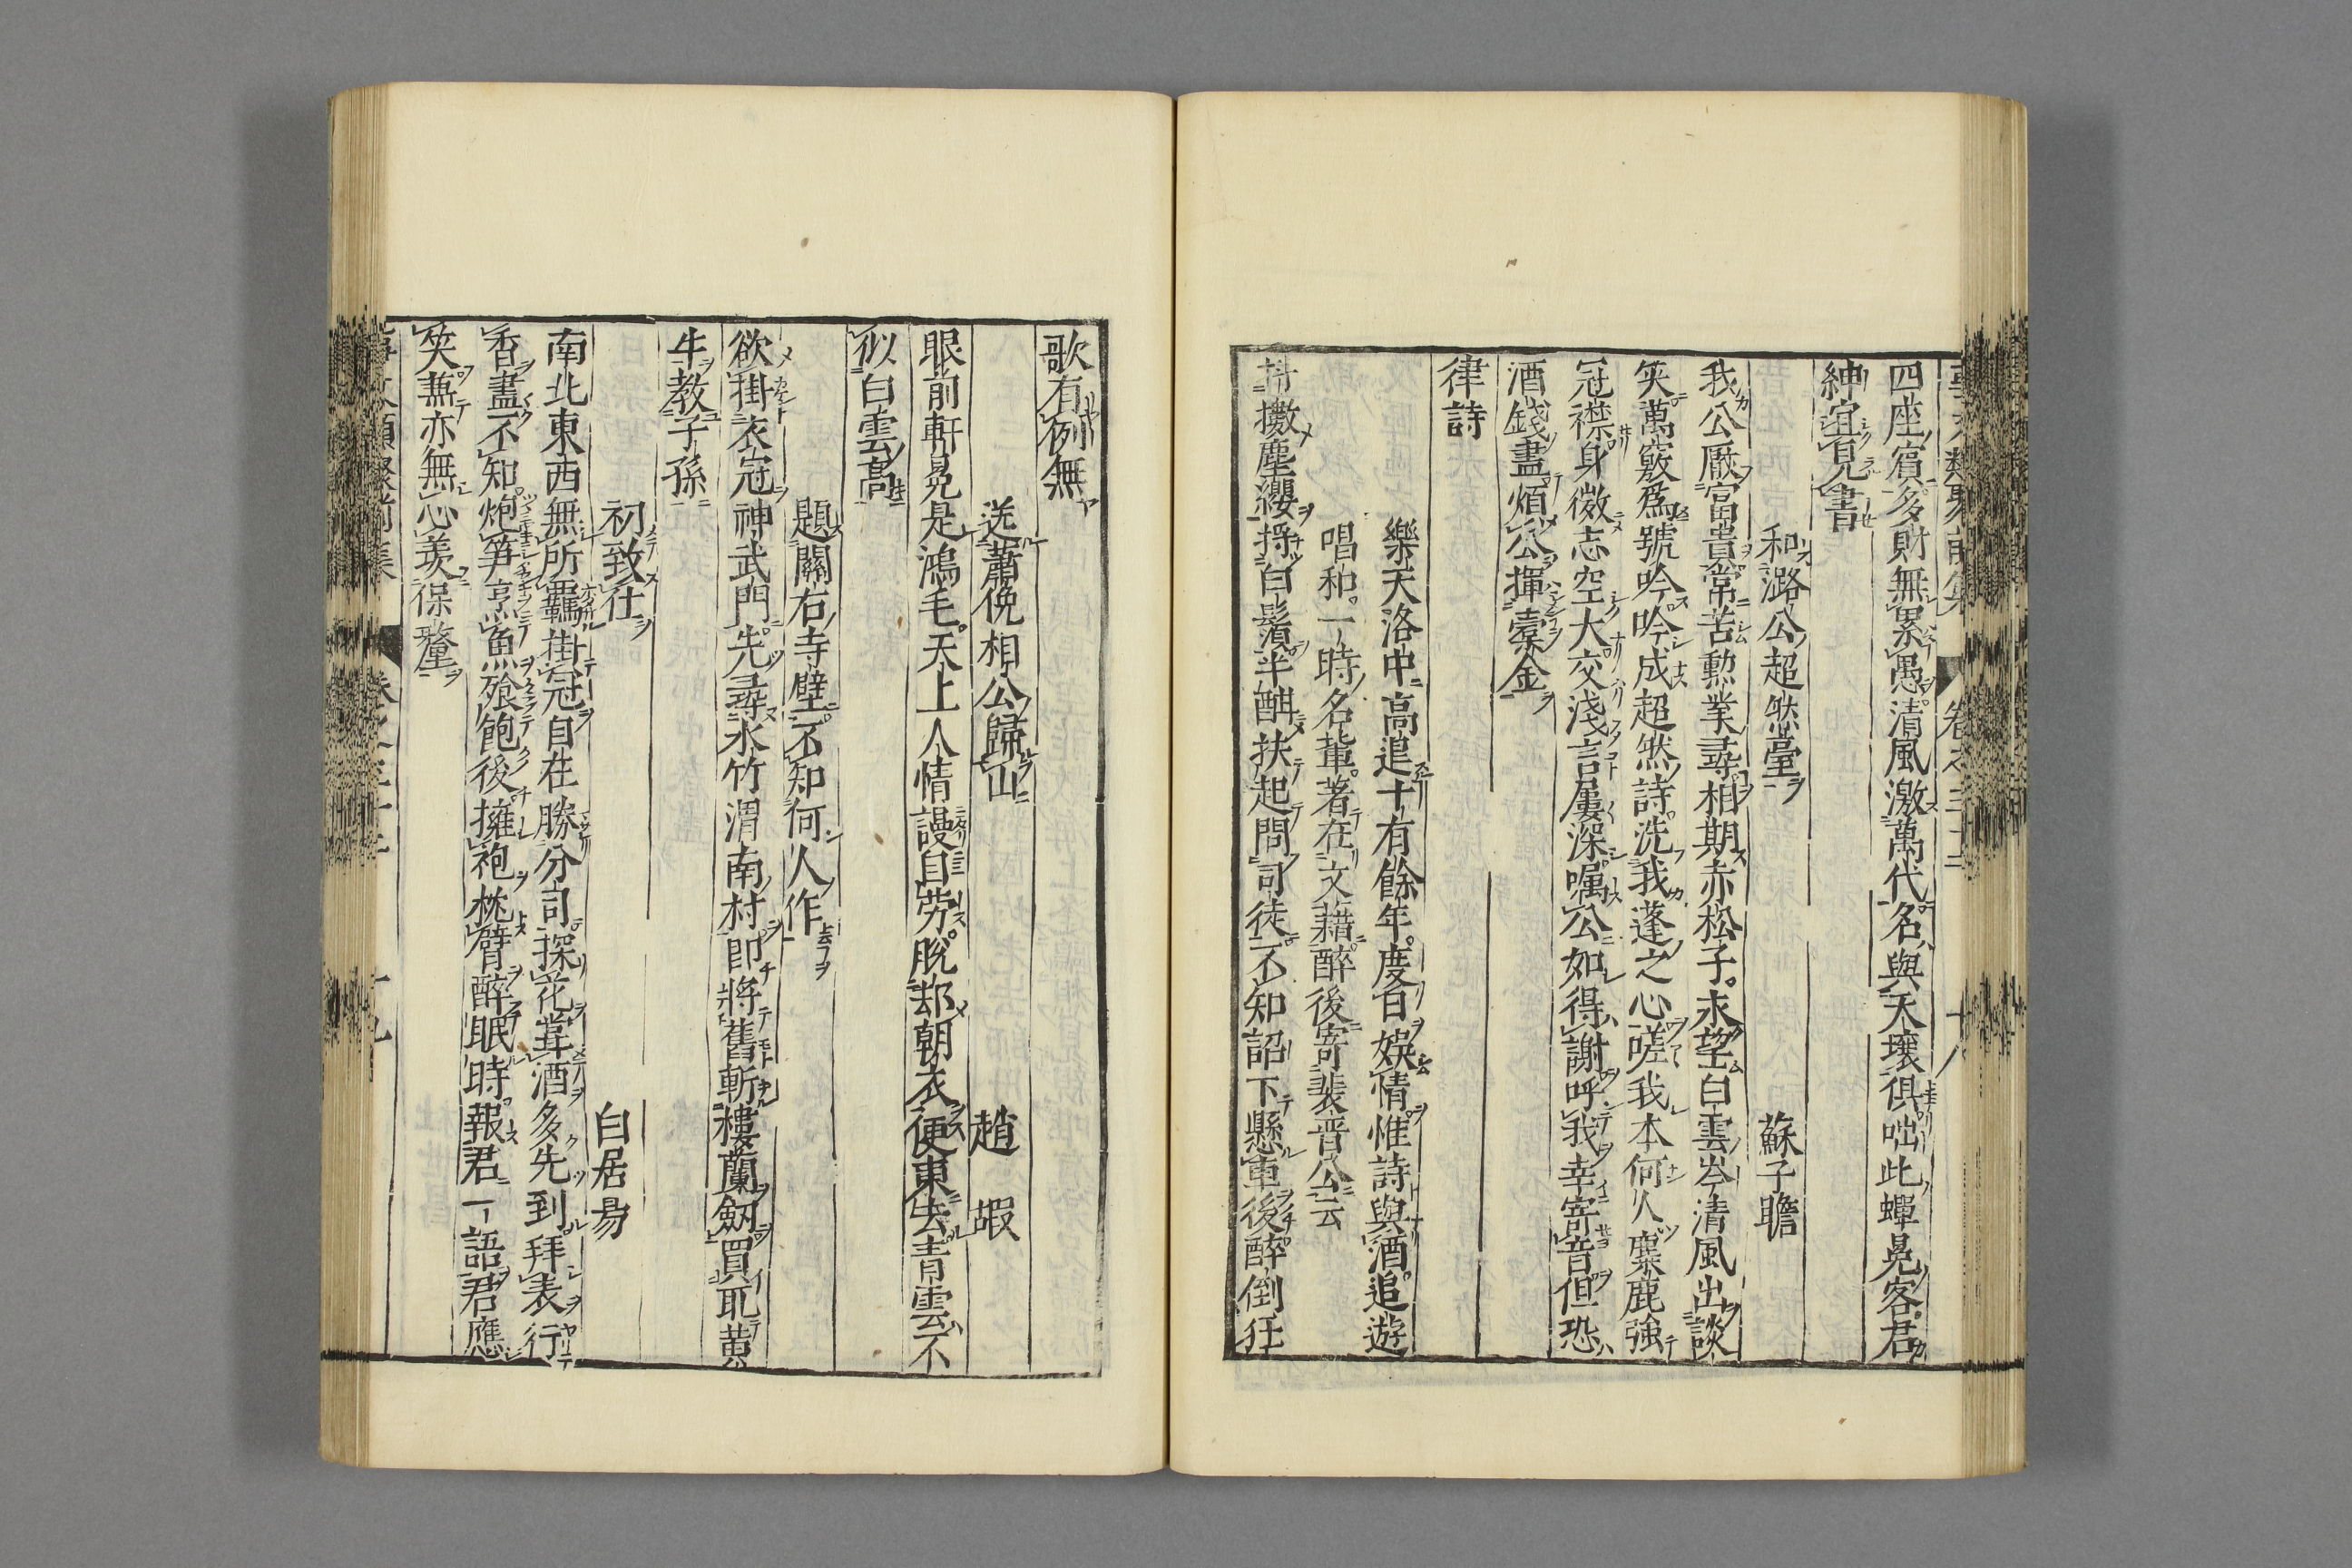 四座賓多財無累愚清風激萬代名與天壤俱咄此蟬晃客君
紳宜見書
和潞公超然臺 蘇子瞻
我公厭富貴常苦勲業尋相期赤松子永望白雲岑清風出談
笑萬竅爲號吟吟成超然詩洗我蓬之心嗟我本何人麋鹿強
冠襟身微志空大交淺言屢深囑公如得謝呼我幸寄音但恐
酒錢盡煩公揮橐金
律詩
樂天洛中高追十有餘年度日娯情惟詩與酒追遊
唱和一時名軰著在文藉醉後寄裴晋公云
抖擻塵纓捋白鬚半酣扶起問司徒不知詔下懸車後醉倒狂
歌有例無
送蕭俛相公歸山 趙嘏
眼前軒晃是鴻毛天上人情謾自労脫却朝衣便東去青雲不
似白雲高
題關右寺壁不知何人作
欲掛衣冠神武門先尋水竹渭南村即將舊斬樓蘭劒買取黄
牛教子孫
初致仕 白居易
南北東西無所羈掛冠自在勝分司探花甞酒多先到拜表行
香盡不知炮笋烹魚飱飽後擁袍枕臂醉眠時報君一語君應
笑兼亦無心羨保釐